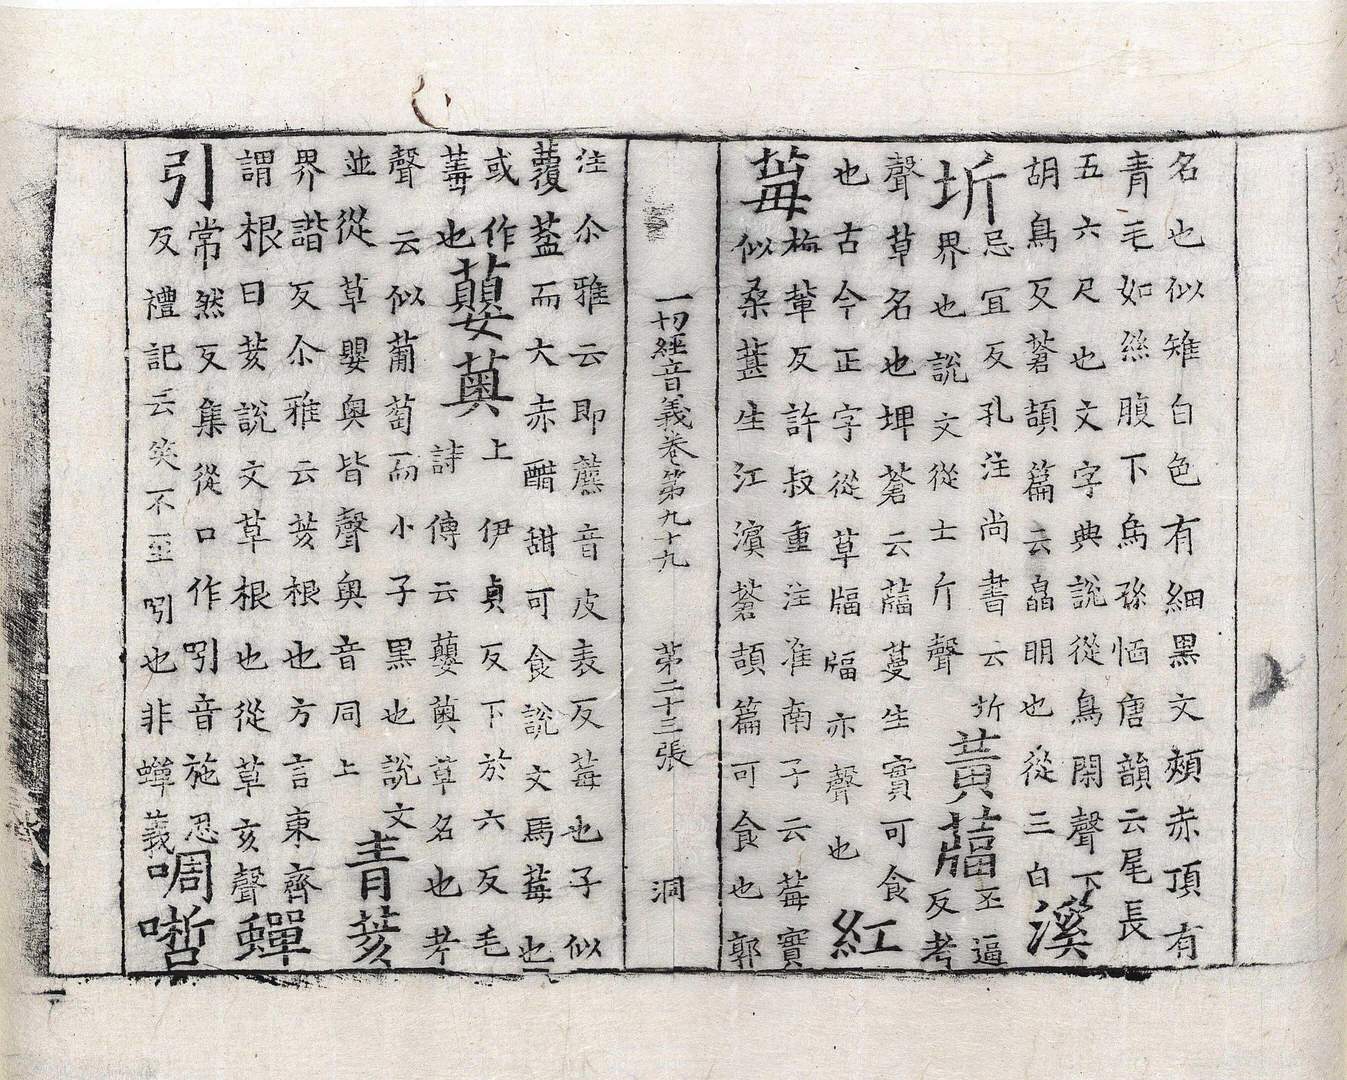 名也似雉白色有細黑文頰赤頂有
青毛如絲腹下烏孫愐唐韻云尾長
五六尺也文字典說從鳥閑聲下
胡鳥反蒼頡篇云皛明也從三白溪
圻忌冝反孔注尚書云圻
界也說文從土斤聲黃䕄丕逼反考
聲草名也埤蒼云䕄蔓生實可食
也古今正字從草畐畐亦聲也紅
莓梅輩反許叔重注淮南子云莓實
似桑葚生江濱蒼頡篇可食也郭
一切經音義卷第九十九 第二十三張 洞
注尒雅云即藨音皮表反莓也子似
覆葢而大赤醋甜可食說文馬莓也
或作䓯也蘡薁上伊貞反下於六反毛
詩傳云蘡薁草名也考
聲云似蒲萄而小子黑也說文
並從草嬰奥皆聲奥音同上青荄
界諧反尒雅云荄根也方言東齊
謂根曰荄說文草根也從草亥聲蟬
引常然反集從口作吲音施忍
反禮記云笑不至吲也非蟬義啁哳